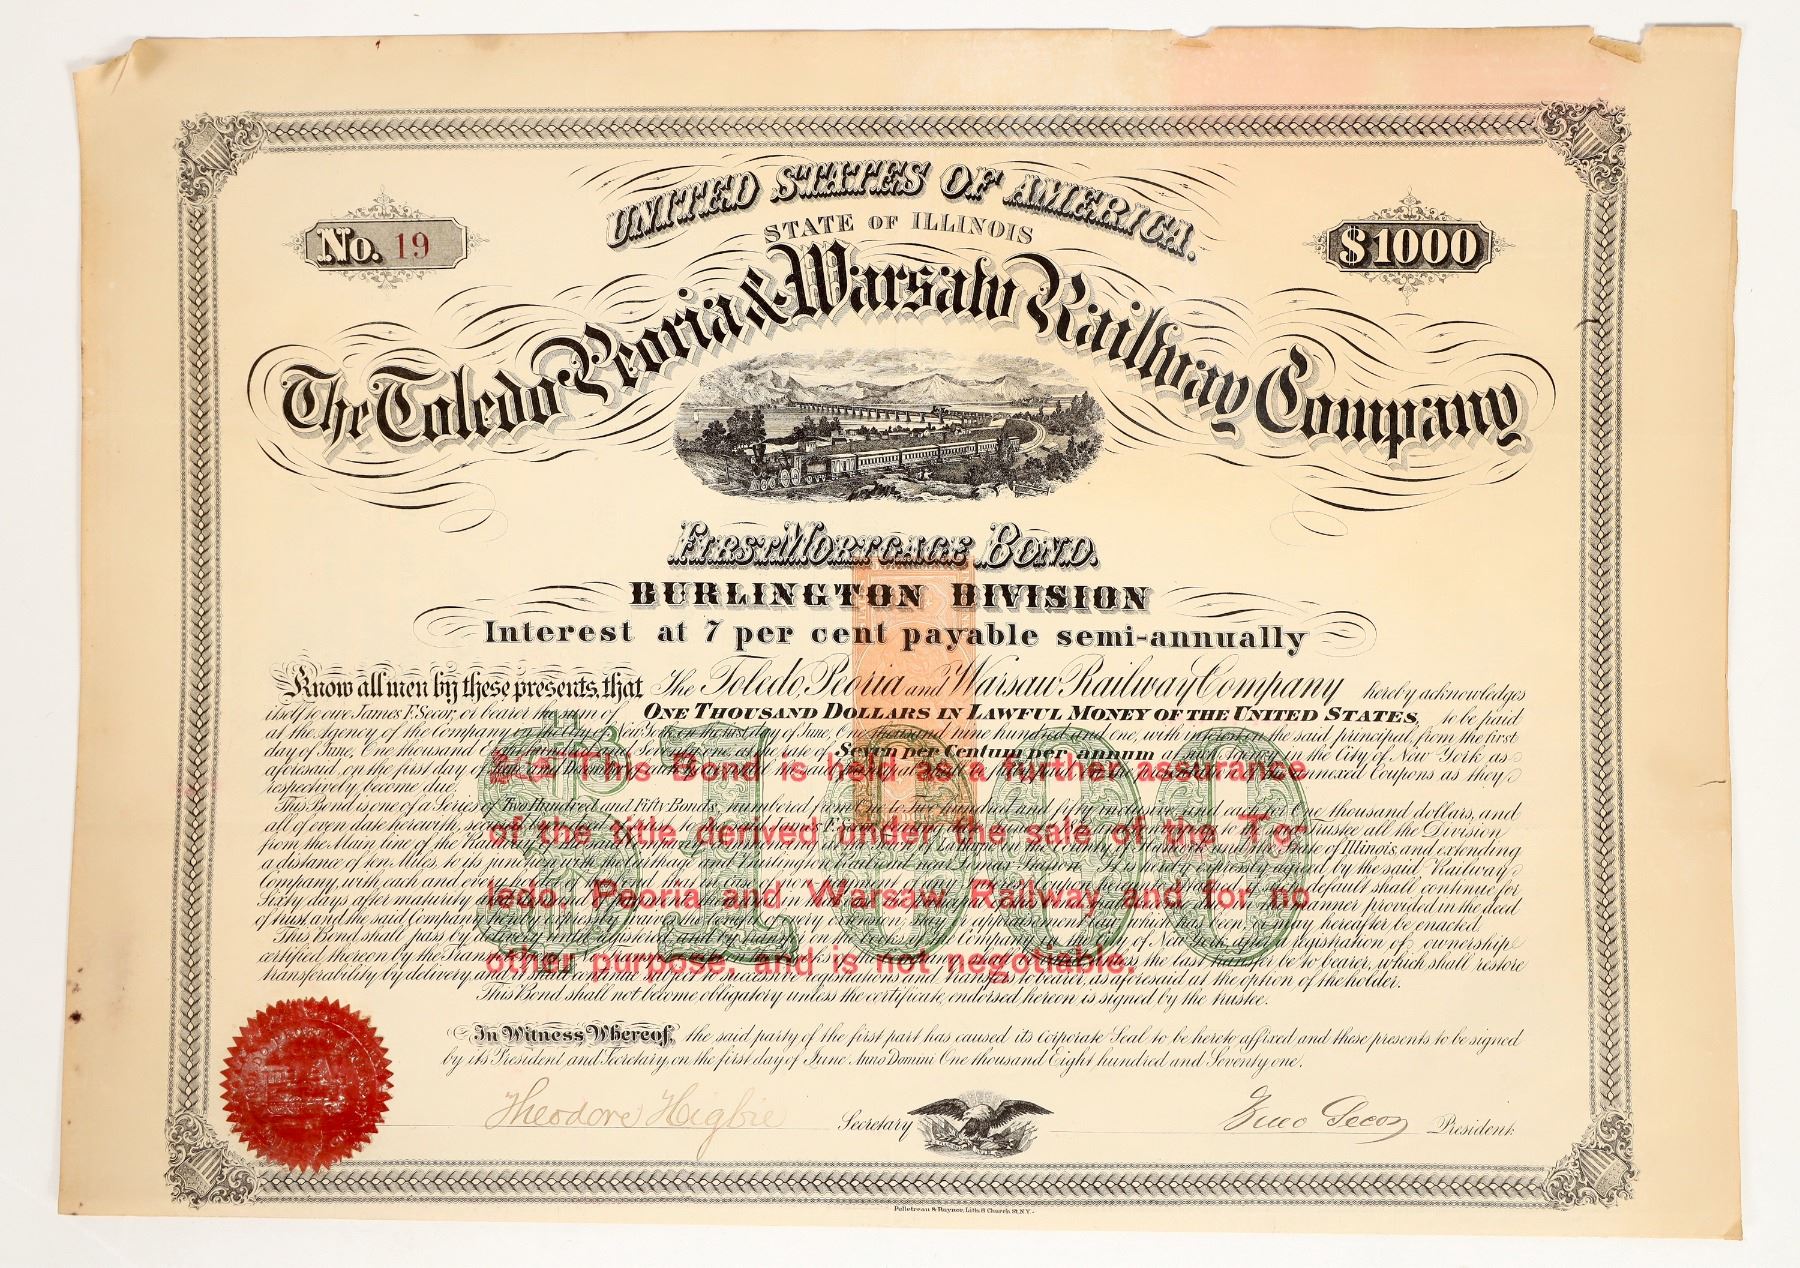 No. 19
UNITED STATES OF AMERICA.
$1000
STATE OF ILLINOIS
The Toledo Peoria & Warsaw Railway Company
FIRST MORTGAGE BOND.
BURLINGTON DIVISION
Interest at 7 per cent payable semi-annually
Know all men by these presents, that The Toledo, Peoria and Warsaw Railway Company hereby acknowledges
itself to owe James F. Secor, or bearer the sum of ONE THOUSAND DOLLARS IN LAWFUL MONEY OF THE UNITED STATES, to be paid
at the Agency of the Company in the City of New York on the first day of June, One thousand nine hundred and one, with interest on the said principal, from the first
day of June, One thousand Eight hundred and Seventy one at the rate of Seven per Centum per annum at said Agency in the City of New York as
aforesaid, on the first day of annexed Coupons as they
respectively become due.
This Bond is one of a Series of Two Hundred and Fifty Bonds, numbered from One to Two hundred and fifty inclusive and each for One thousand dollars, and
all of even date herewith, Trustee all the Division
from the Main line of the Railway State of Illinois, and extending
a distance of ten Miles, to its junction with the Carthage and Burlington Railroad near It is hereby expressly agreed by the said Railway
Company, with each and every default shall continue for
Sixty days after maturity manner provided in the deed
of trust, and the said Company hereby expressly waives which has been, or may hereafter be enacted.
This Bond shall pass by delivery until registered, and by transfer on the books of the Company in the City of New York, after a registration of ownership
certified thereon by the Transfer the last transfer be to bearer, which shall restore
transferability by delivery, and successive registrations and transfers to bearer, as aforesaid at the option of the holder.
This Bond shall not become obligatory unless the certificate, endorsed hereon is signed by the trustee.
$1000
This Bond is held as a further assurance
of the title derived under the sale of the To-
ledo, Peoria and Warsaw Railway and for no
other purpose, and is not negotiable.
In Witness Whereof, the said party of the first part has caused its Corporate Seal to be hereto affixed and these presents to be signed
by its President and Secretary, on the first day of June Anno Domini One thousand Eight hundred and Seventy one.
Theodore Higbie Secretary
Secor President
Pelletreau & Raynor, Lith. 8 Church St. N.Y.